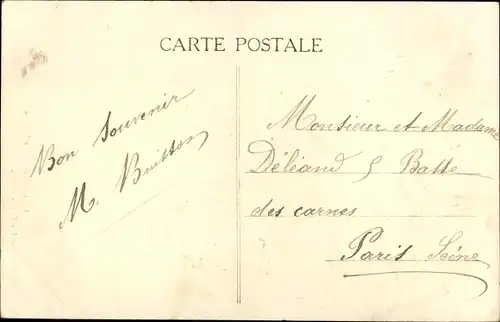 CARTE POSTALE
Bon Souvenir
M. Buisson
Monsieur et Madame
Déléand 5 Batte
des carnes
Paris Seine